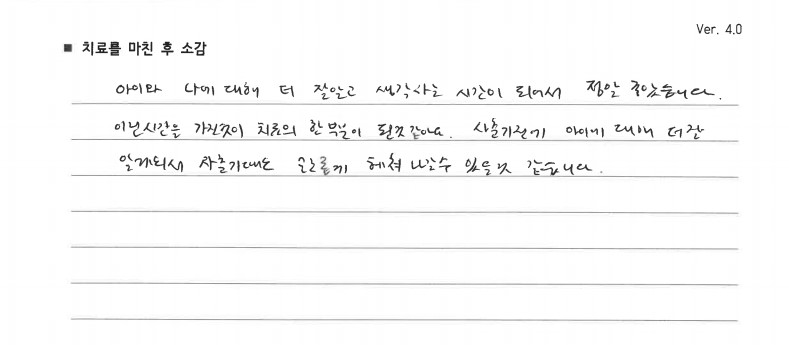 Ver. 4.0
■ 치료를 마친 후 소감
아이와 나에 대해 더 잘알고 생각하는 시간이 되어서 정말 좋았습니다.
이런시간을 가진것이 치료의 한 부분이 된것같아요. 사춘기전에 아이에 대해 더잘
알게되서 사춘기때도 슬기롭게 헤쳐 나갈수 있을것 같습니다.